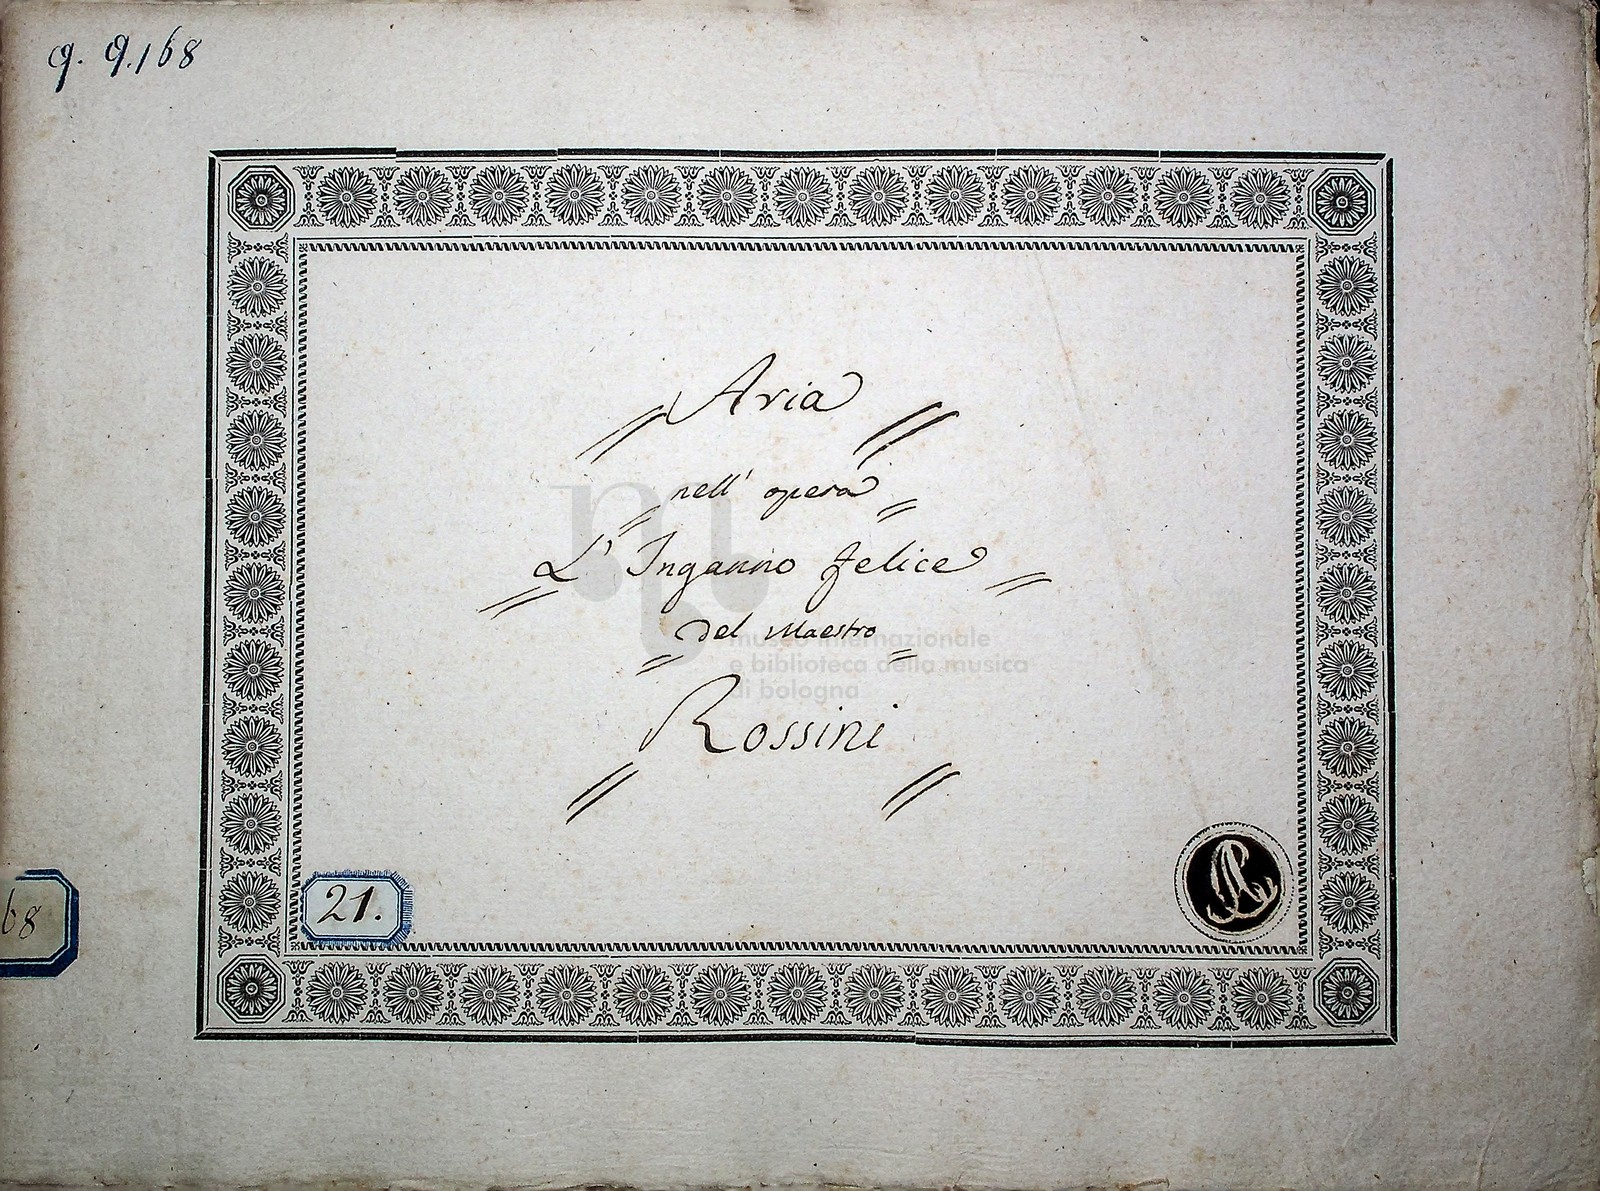 q. q.168
Aria
nell' opera
L' Inganno felice
del Maestro
Rossini
museo internazionale
e biblioteca della musica
di bologna
21.
68